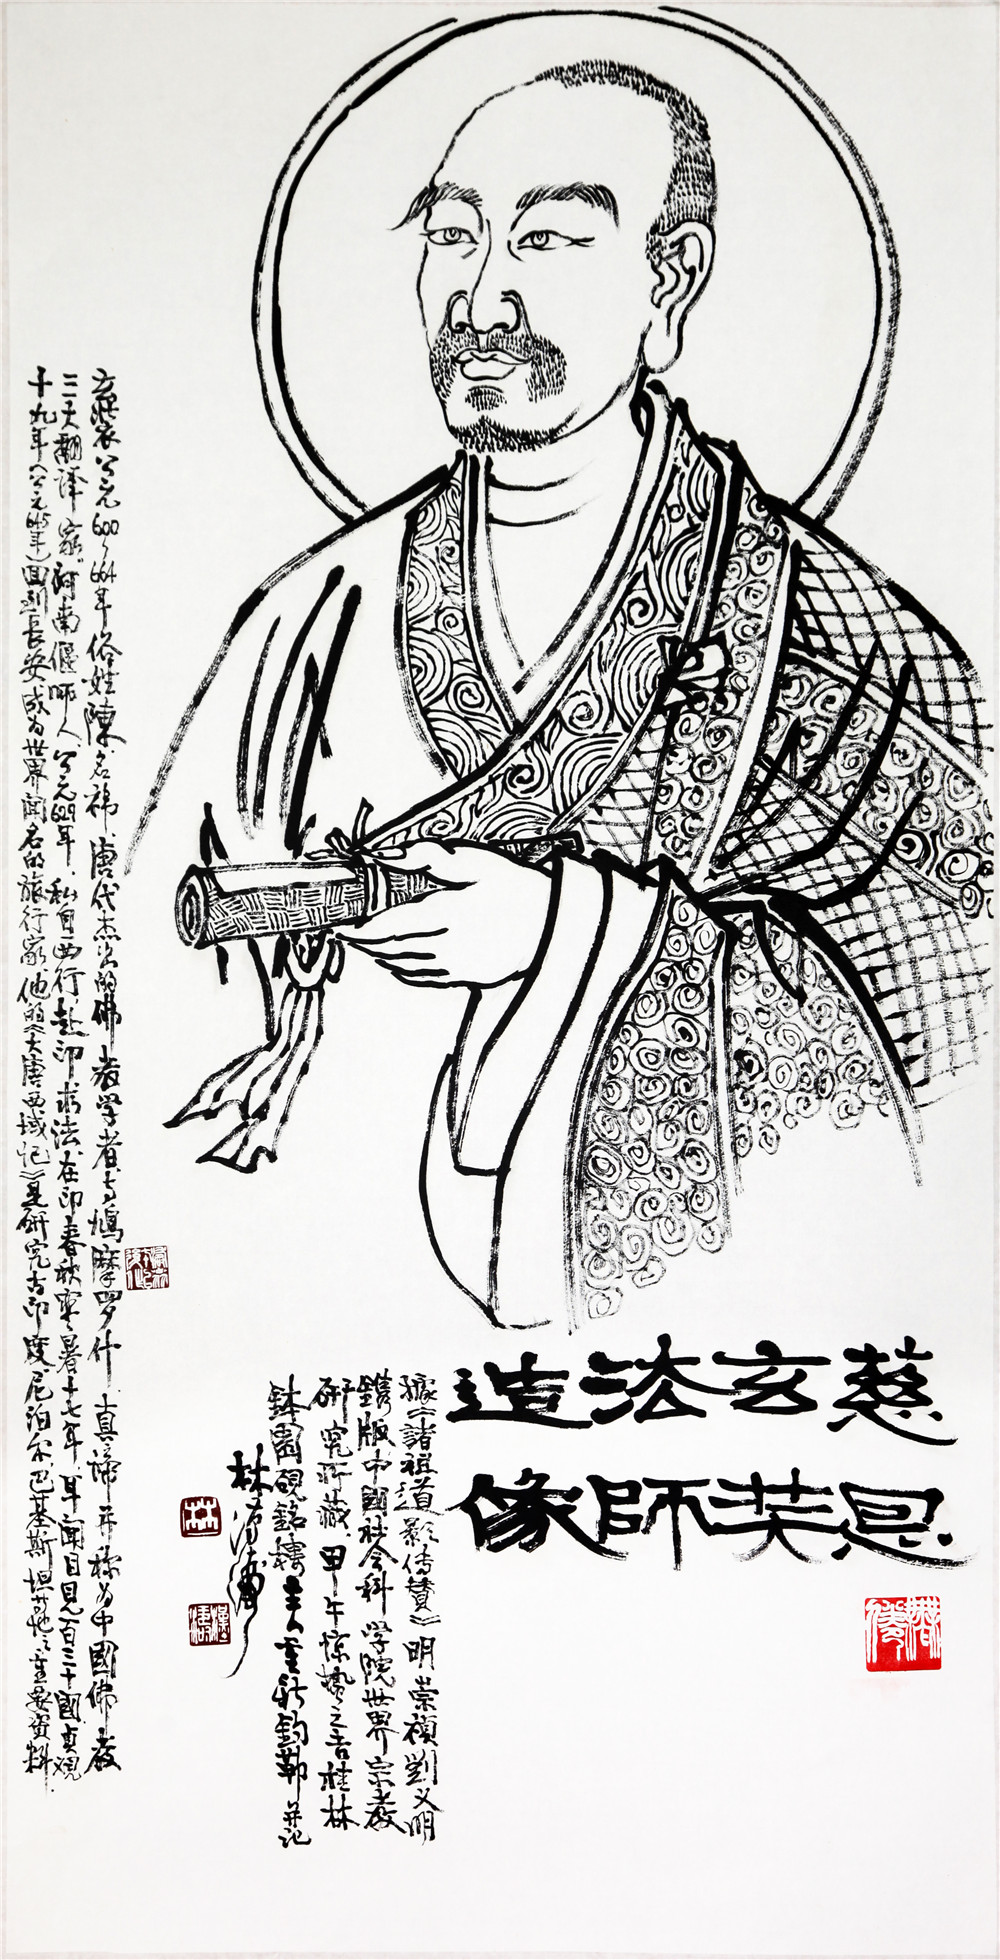 慈恩
玄奘
法師
造像
據《諸祖道影传贊》明崇禎劉义明
鐫版中國社会科学院世界宗教
研究所藏甲午惊蛰之吉桂林
鉢園硯銘樓主人重新鈎勒并记
林
林
玄奘公元600~664年俗姓陳名祎唐代杰出的佛教学者与鳩摩罗什真諦并称为中國佛教
三大翻译家河南偃师人公元629年私自西行赴印求法在印春秋寒暑十七年耳闻目见百三十國貞观
十九年(公元645年)回到長安成为世界闻名的旅行家他的《大唐西域记》是研究古印度尼泊尔巴基斯坦等地之重要資料